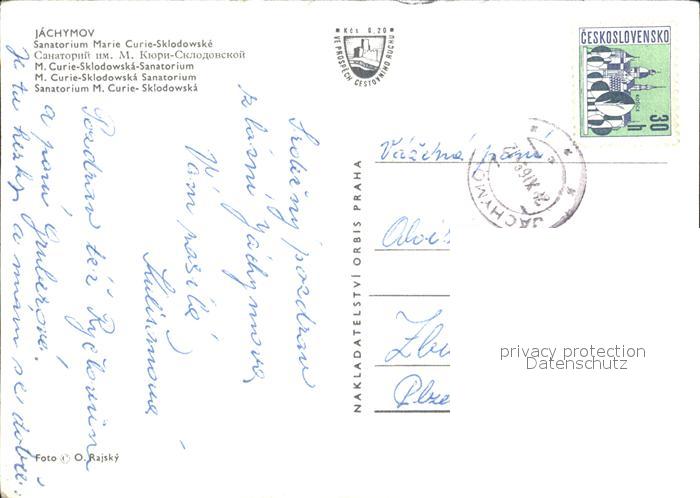 JÁCHYMOV
Sanatorium Marie Curie-Sklodowské
Санаторий им. М. Кюри-Склодовской
M. Curie-Sklodowská-Sanatorium
M. Curie-Sklodowská Sanatorium
Sanatorium M. Curie- Sklodowská
Kčs 0,20
VE PROSPĚCH CESTOVNÍHO RUCHU
ČESKOSLOVENSKO
30 h
JÁCHYMOV
Vážená paní
Alois
Zbu
Plze
NAKLADATELSTVÍ ORBIS PRAHA
Srdečný pozdrav
z lázní Jáchymova
Vám posílá
Pozdrav též
a paní Gruberová.
Je tu hezky a mám se dobře.
Foto © O. Rajský
privacy protection
Datenschutz